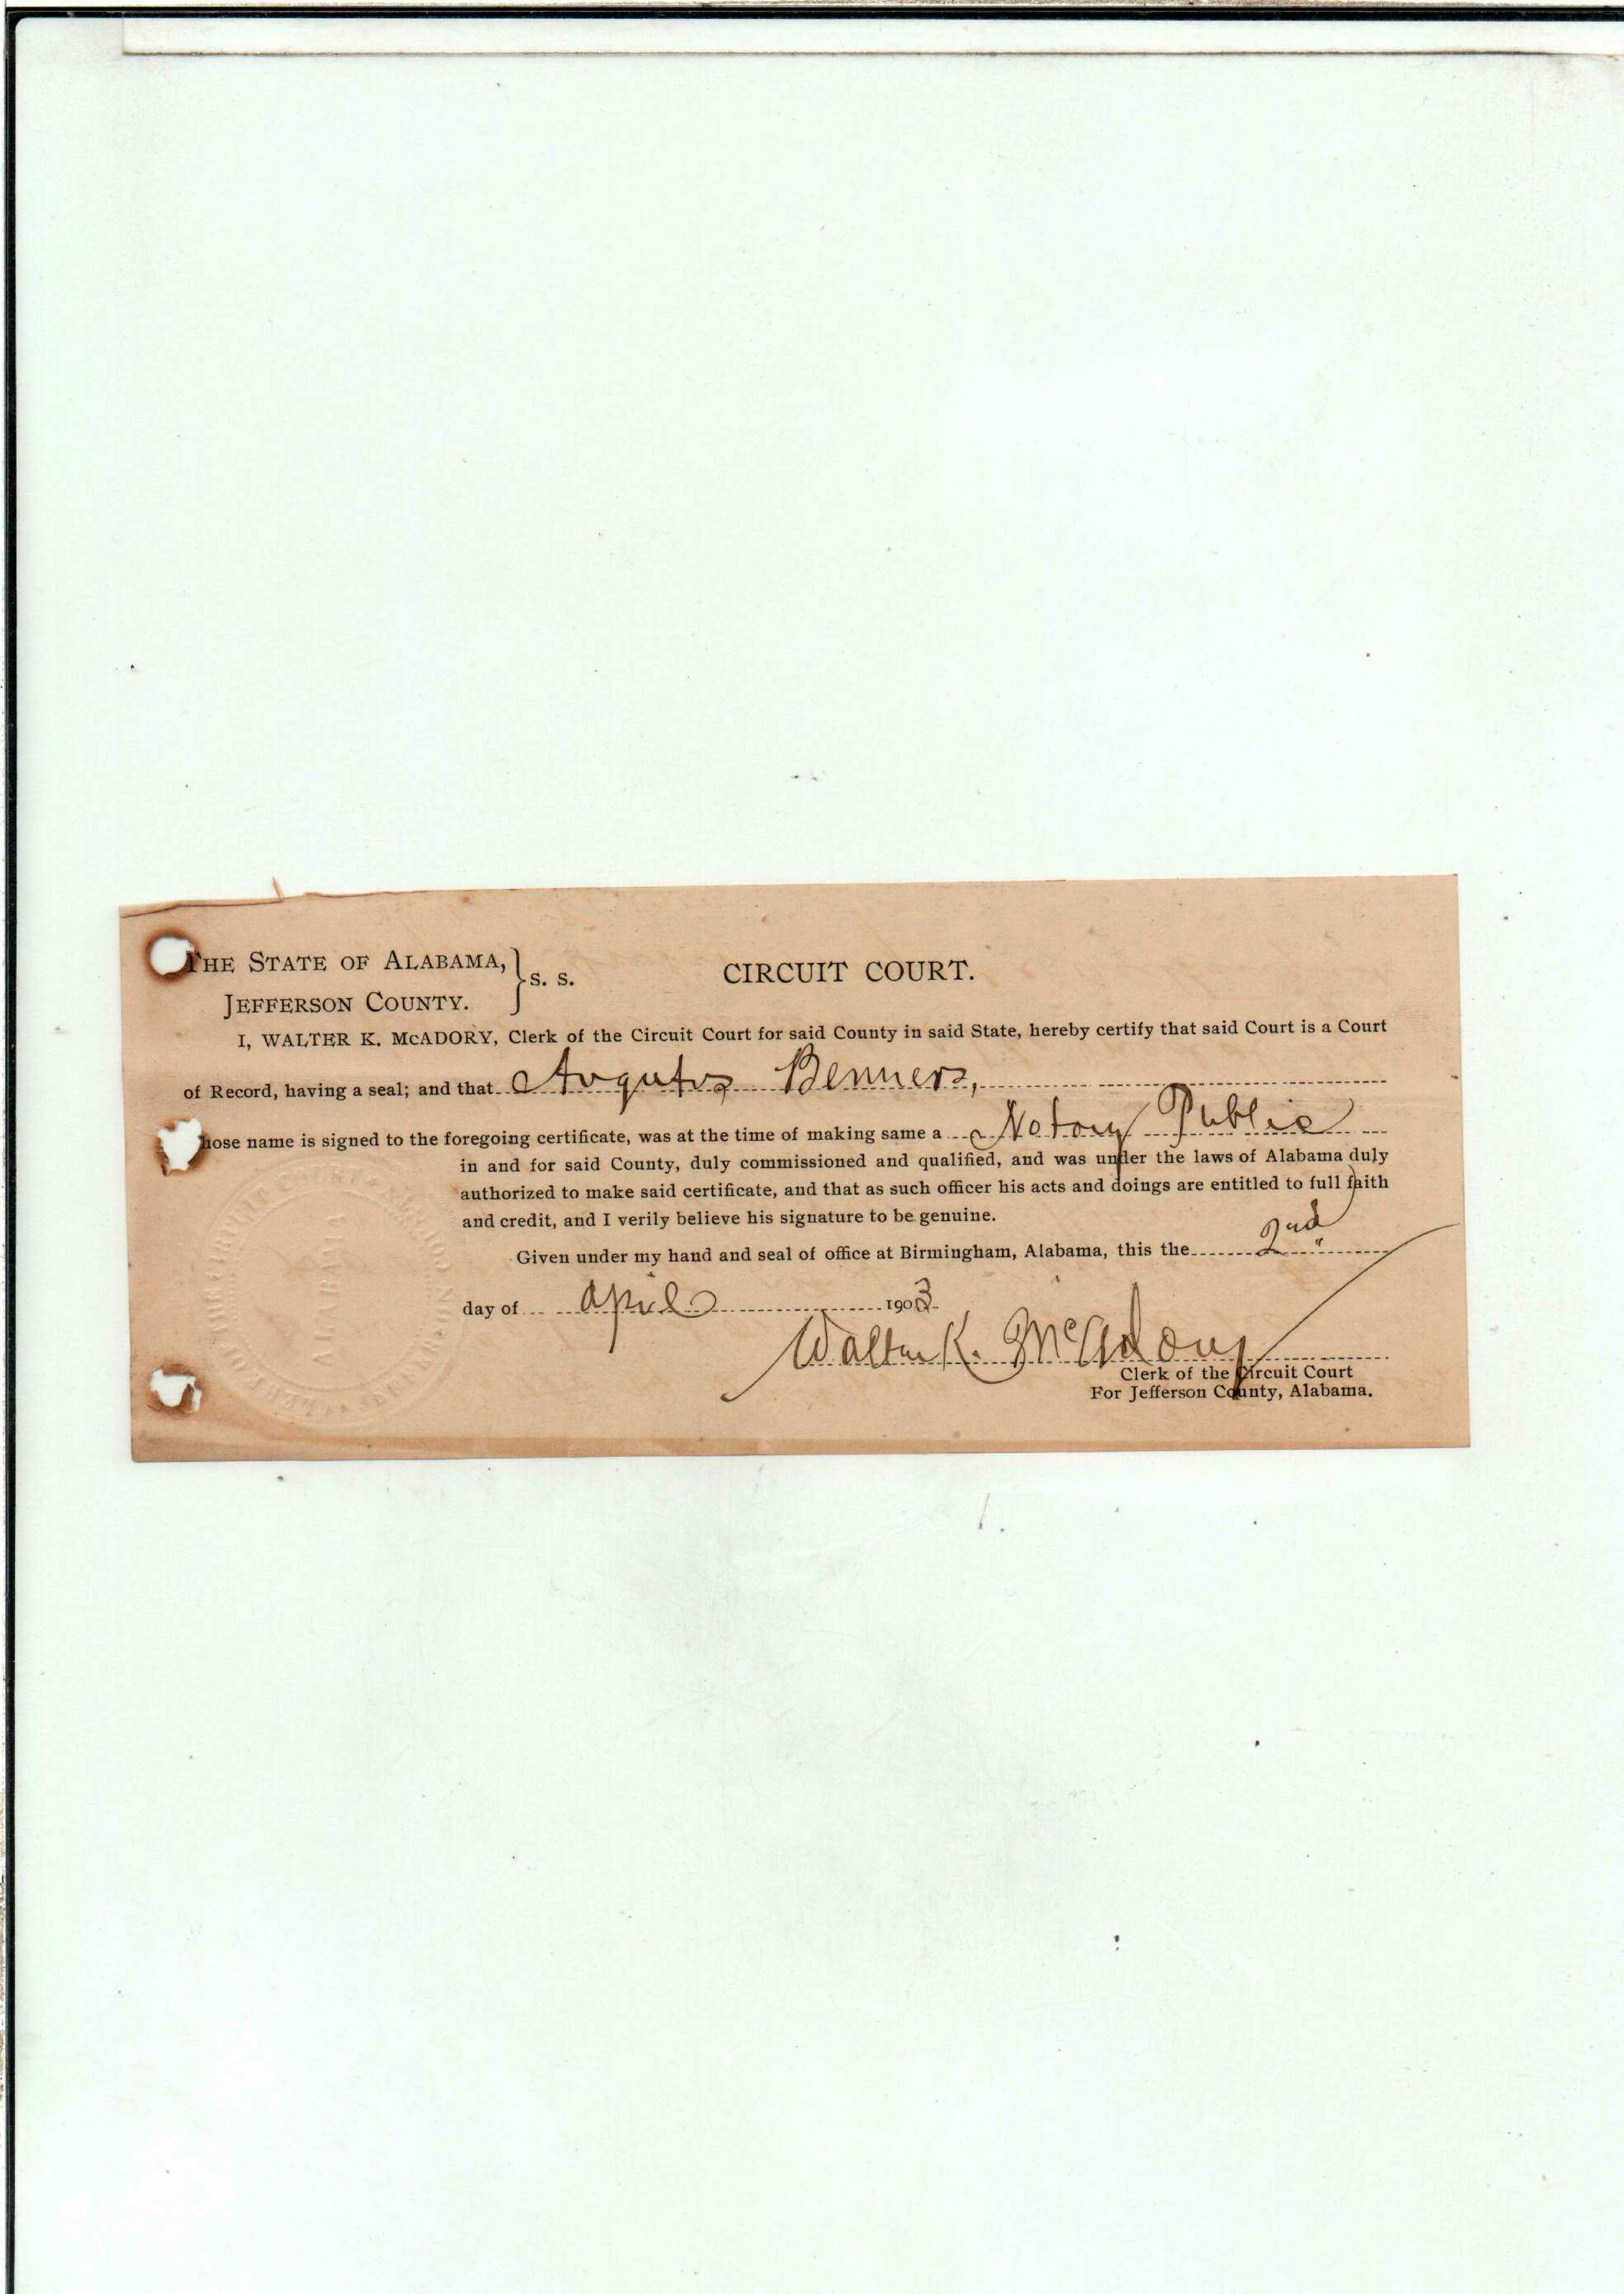 THE STATE OF ALABAMA, } S. S.
JEFFERSON COUNTY.
CIRCUIT COURT.
I, WALTER K. McADORY, Clerk of the Circuit Court for said County in said State, hereby certify that said Court is a Court
of Record, having a seal; and that Augutus Benners,
hose name is signed to the foregoing certificate, was at the time of making same a Notary Public
in and for said County, duly commissioned and qualified, and was under the laws of Alabama duly
authorized to make said certificate, and that as such officer his acts and doings are entitled to full faith
and credit, and I verily believe his signature to be genuine.
Given under my hand and seal of office at Birmingham, Alabama, this the 2nd
day of April 1903
Walter K. McAdory
Clerk of the Circuit Court
For Jefferson County, Alabama.
ALABAMA